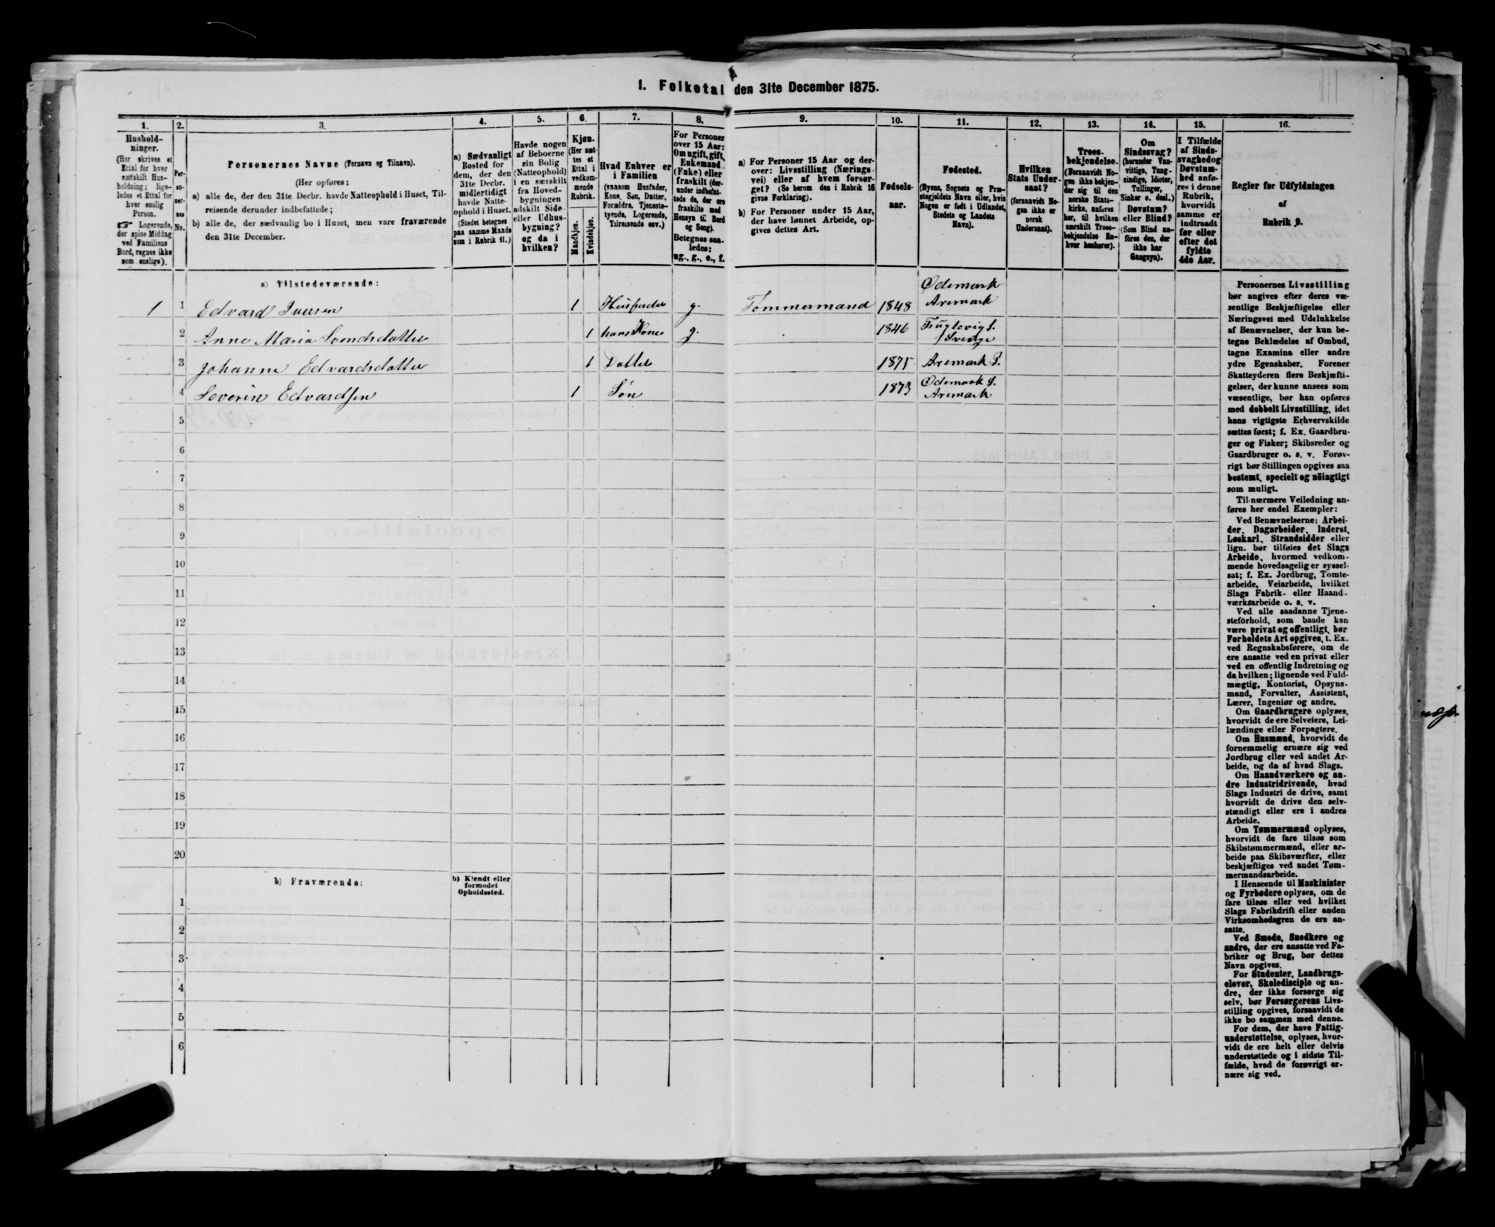 1. Folketal den 31te December 1875.
1.
Hushold-
ninger.
(Her skrives et
Ettal for hver
særskilt Hus-
holdning; lige-
ledes et Ettal for
hver enslig
Person.
☞ Logerende,
der spise Middag
ved Familiens
Bord, regnes ikke
som enslige).
2.
Per-
so-
ner-
nes
No.
3.
Personernes Navne (Fornavn og Tilnavn).
(Her opføres:
a) alle de, der den 31te Decbr. havde Natteophold i Huset, Til-
reisende derunder indbefattede;
b) alle de, der sædvanlig bo i Huset, men vare fraværende
den 31te December.
4.
a) Sædvanligt
Bosted for
dem, der den
31te Decbr.
midlertidigt
havde Natte-
ophold i Huset.
(Stedet betegnes
paa samme Maade
som i Rubrik 11.)
5.
Havde nogen
af Beboerne
sin Bolig
(Natteophold)
i en særskilt
fra Hoved-
bygningen
adskilt Side-
eller Udhus-
bygning?
og da i
hvilken?
6.
Kjøn.
(Her sæt-
tes et
Ettal i
vedkom-
mende
Rubrik.
Mandkjøn.
Kvindekjøn.
7.
Hvad Enhver er
i Familien
(saasom Husfader,
Kone, Søn, Datter,
Forældre, Tjeneste-
tyende, Logerende,
Tilreisende osv.)
8.
For Personer
over 15 Aar:
Om ugift, gift,
Enkemand
(Enke) eller
fraskilt (der-
under indbefat-
tede de, der ere
fraskilte med
Hensyn til Bord
og Seng).
Betegnes saa-
ledes:
ug., g., e., f.
9.
a) For Personer 15 Aar og der-
over: Livsstilling (Nærings-
vei) eller af hvem forsør-
get? (Se herom den i Rubrik 16
givne Forklaring).
b) For Personer under 15 Aar,
der have lønnet Arbeide, op-
gives dettes Art.
10.
Fødsels-
aar.
11.
Fødested.
(Byens, Sognets og Præ-
stegjeldets Navn eller, hvis
Nogen er født i Udlandet,
Stedets og Landets
Navn).
12.
Hvilken
Stats Under-
saat?
(forsaavidt No-
gen ikke er
norsk
Undersaat).
13.
Troes-
bekjendelse.
(Forsaavidt No-
gen ikke bekjen-
der sig til den
norske Stats-
kirke, anføres
her, til hvilken
særskilt Troes-
bekjendelse En-
hver henhører).
14.
Om
Sindssvag?
(herunder Van-
vittige, Tung-
sindige, Idioter,
Tullinger,
Sinker o. desl.)
Døvstum?
eller Blind?
(Som Blind an-
føres den, der
ikke har
Gangsyn).
15.
I Tilfælde
af Sinds-
svaghed og
Døvstum-
hed anfø-
res i denne
Rubrik,
hvorvidt
samme er
indtraadt
før eller
efter det
fyldte
4de Aar.
16.
Regler for Udfyldningen
af
Rubrik 9.
a) Tilstedeværende:
1 1 Edvard Iversen 1 Husfader g. Tømmermand 1848 Ødemark Aremark
2 Anne Maria Svendsdatter 1 hans Kone g. 1846 Sverige
3 Johanne Edvardsdatter 1 Datter 1875 Aremark S.
4 Severin Edvardsen 1 Søn 1873 Ødemark S. Aremark
5
6
7
8
9
10
11
12
13
14
15
16
17
18
19
20
b) Fraværende:
b) Kjendt eller
formodet
Opholdssted.
1
2
3
4
5
6
Personernes Livsstilling
bør angives efter deres væ-
sentlige Beskjæftigelse eller
Næringsvei med Udelukkelse
af Benævnelser, der kun be-
tegne Beklædelse af Ombud,
tagne Examina eller andre
ydre Egenskaber. Forener
Skatteyderen flere Beskjæfti-
gelser, der kunne ansees som
væsentlige, bør han opføres
med dobbelt Livsstilling, idet
hans vigtigste Erhvervskilde
sættes først; f. Ex. Gaardbru-
ger og Fisker; Skibsreder og
Gaardbruger o. s. v. Forøv-
rigt bør Stillingen opgives saa
bestemt, specielt og nöiagtigt
som muligt.
Til nærmere Veiledning an-
føres her endel Exempler:
Ved Benævnelserne: Arbei-
der, Dagarbeider, Inderst,
Løskarl, Strandsidder eller
lign. bør tilføies det Slags
Arbeide, hvormed vedkom-
mende hovedsagelig er syssel-
sat; f. Ex. Jordbrug, Tomte-
arbeide, Veiarbeide, hvilket
Slags Fabrik- eller Haand-
værksarbeide o. s. v.
Ved alle saadanne Tjene-
steforhold, som baade kan
være privat og offentligt, bør
Forholdets Art opgives, t. Ex.
ved Regnskabsførere, om de
ere ansatte ved en privat eller
ved en offentlig Indretning og
da hvilken; lignende ved Fuld-
mægtig, Kontorist, Opsyns-
mand, Forvalter, Assistent,
Lærer, Ingeniør og andre.
Om Gaardbrugere oplyses,
hvorvidt de ere Selveiere, Lei-
lændinge eller Forpagtere.
Om Husmænd, hvorvidt de
fornemmelig ernære sig ved
Jordbrug eller ved andet Ar-
beide, og da af hvad Slags.
Om Haandværkere og an-
dre Industridrivende, hvad
Slags Industri de drive, samt
hvorvidt de drive den selv-
stændigt eller ere i andres
Arbeide.
Om Tømmermænd oplyses,
hvorvidt de fare tilsøs som
Skibstømmermænd, eller ar-
beide paa Skibsværfter, eller
beskjæftiges ved andet Tøm-
mermandsarbeide.
I Henseende til Maskinister
og Fyrbødere oplyses, om de
fare tilsøs eller ved hvilket
Slags Fabrikdrift eller anden
Virksomhedsgren de ere an-
satte.
Ved Smede, Snedkere og
andre, der ere ansatte ved Fa-
briker og Brug, bør dettes
Navn opgives.
For Studenter, Landbrugs-
elever, Skoledisciple og an-
dre, der ikke forsørge sig
selv, bør Forsørgerens Livs-
stilling opgives, forsaavidt de
ikke bo sammen med denne.
For dem, der have Fattig-
understøttelse, oplyses, hvor-
vidt de ere helt eller delvis
understøttede og i sidste Til-
fælde, hvad de forøvrigt er-
nære sig ved.